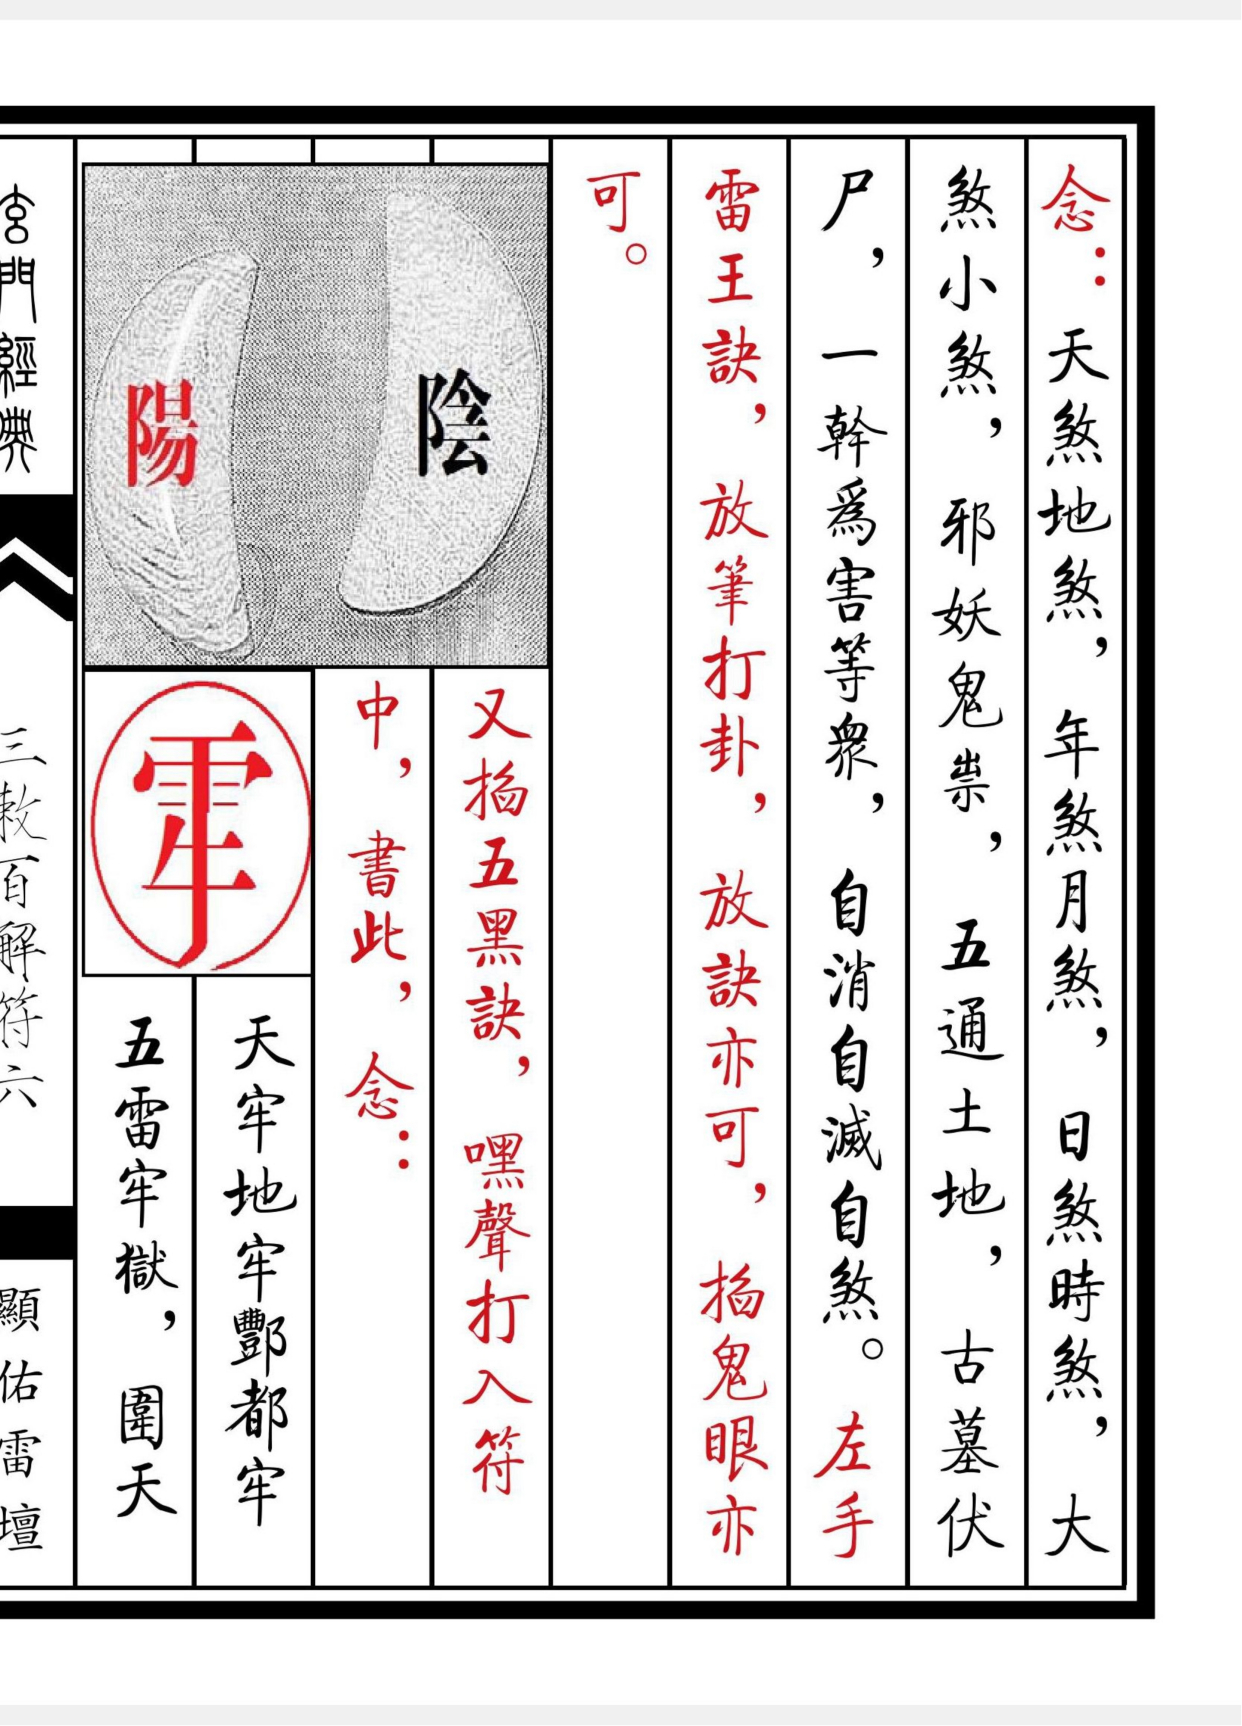 念：天煞地煞，年煞月煞，日煞時煞，大
煞小煞，邪妖鬼祟，五通土地，古墓伏
尸，一幹爲害等衆，自消自滅自煞。左手
雷王訣，放筆打卦，放訣亦可，搊鬼眼亦
可。
陰
陽
又搊五黑訣，嘿聲打入符
中，書此，念：
天牢地牢酆都牢
五雷牢獄，圍天
玄門經典
三敕百解符六
顯佑雷壇